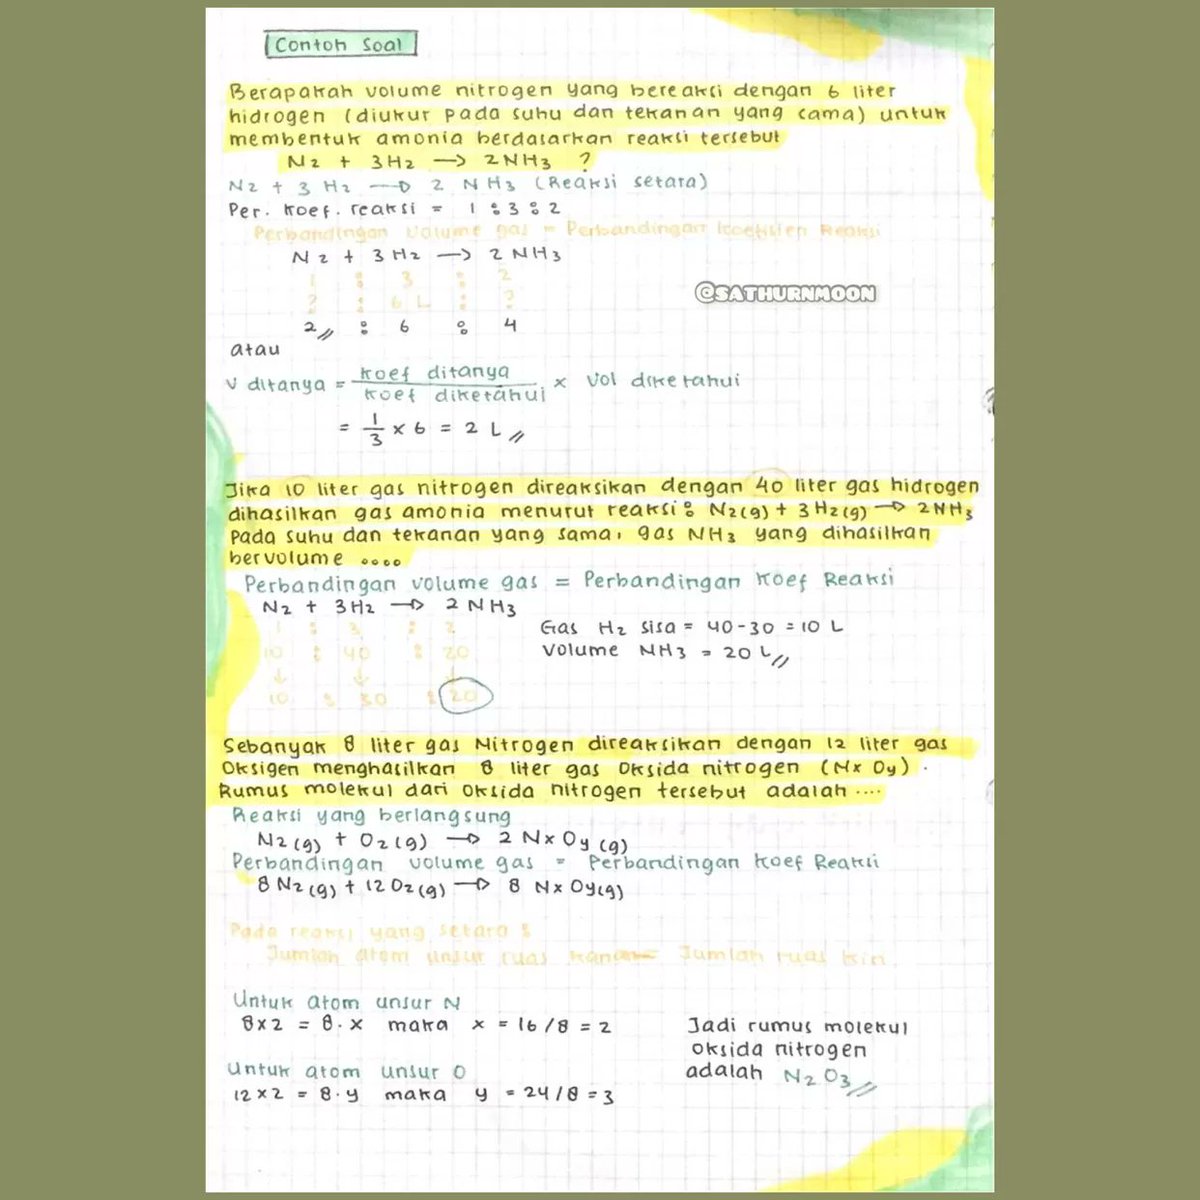 Contoh Soal
Berapakah volume nitrogen yang bereaksi dengan 6 liter
hidrogen (diukur pada suhu dan tekanan yang sama) untuk
membentuk amonia berdasarkan reaksi tersebut
N2 + 3H2 —> 2NH3 ?
N2 + 3 H2 —> 2 NH3 (Reaksi setara)
Per. koef. reaksi = 1 : 3 : 2
Perbandingan volume gas = Perbandingan koefisien Reaksi
N2 + 3H2 —> 2 NH3
1 : 3 : 2
? : 6 L : ?
2// : 6 : 4
@SATHURNMOON
atau
V ditanya = koef ditanya / koef diketahui × Vol diketahui
= 1/3 × 6 = 2 L //
Jika 10 liter gas nitrogen direaksikan dengan 40 liter gas hidrogen
dihasilkan gas amonia menurut reaksi : N2(g) + 3H2(g) —> 2NH3
Pada suhu dan tekanan yang sama, gas NH3 yang dihasilkan
bervolume ....
Perbandingan volume gas = Perbandingan koef Reaksi
N2 + 3H2 —> 2 NH3
1 : 3 : 2
10 : 40 : 20
↓ ↓ ↓
10 : 30 : 20
Gas H2 sisa = 40-30 = 10 L
Volume NH3 = 20 L //
Sebanyak 8 liter gas Nitrogen direaksikan dengan 12 liter gas
Oksigen menghasilkan 8 liter gas Oksida nitrogen (Nx Oy).
Rumus molekul dari Oksida nitrogen tersebut adalah ....
Reaksi yang berlangsung
N2(g) + O2(g) —> 2 NxOy(g)
Perbandingan volume gas = Perbandingan koef Reaksi
8 N2(g) + 12 O2(g) —> 8 NxOy(g)
Pada reaksi yang setara :
Jumlah atom unsur ruas kanan = Jumlah ruas kiri
Untuk atom unsur N
8×2 = 8 . x maka x = 16/8 = 2
Untuk atom unsur O
12×2 = 8.y maka y = 24/8 = 3
Jadi rumus molekul
oksida nitrogen
adalah N2O3 //